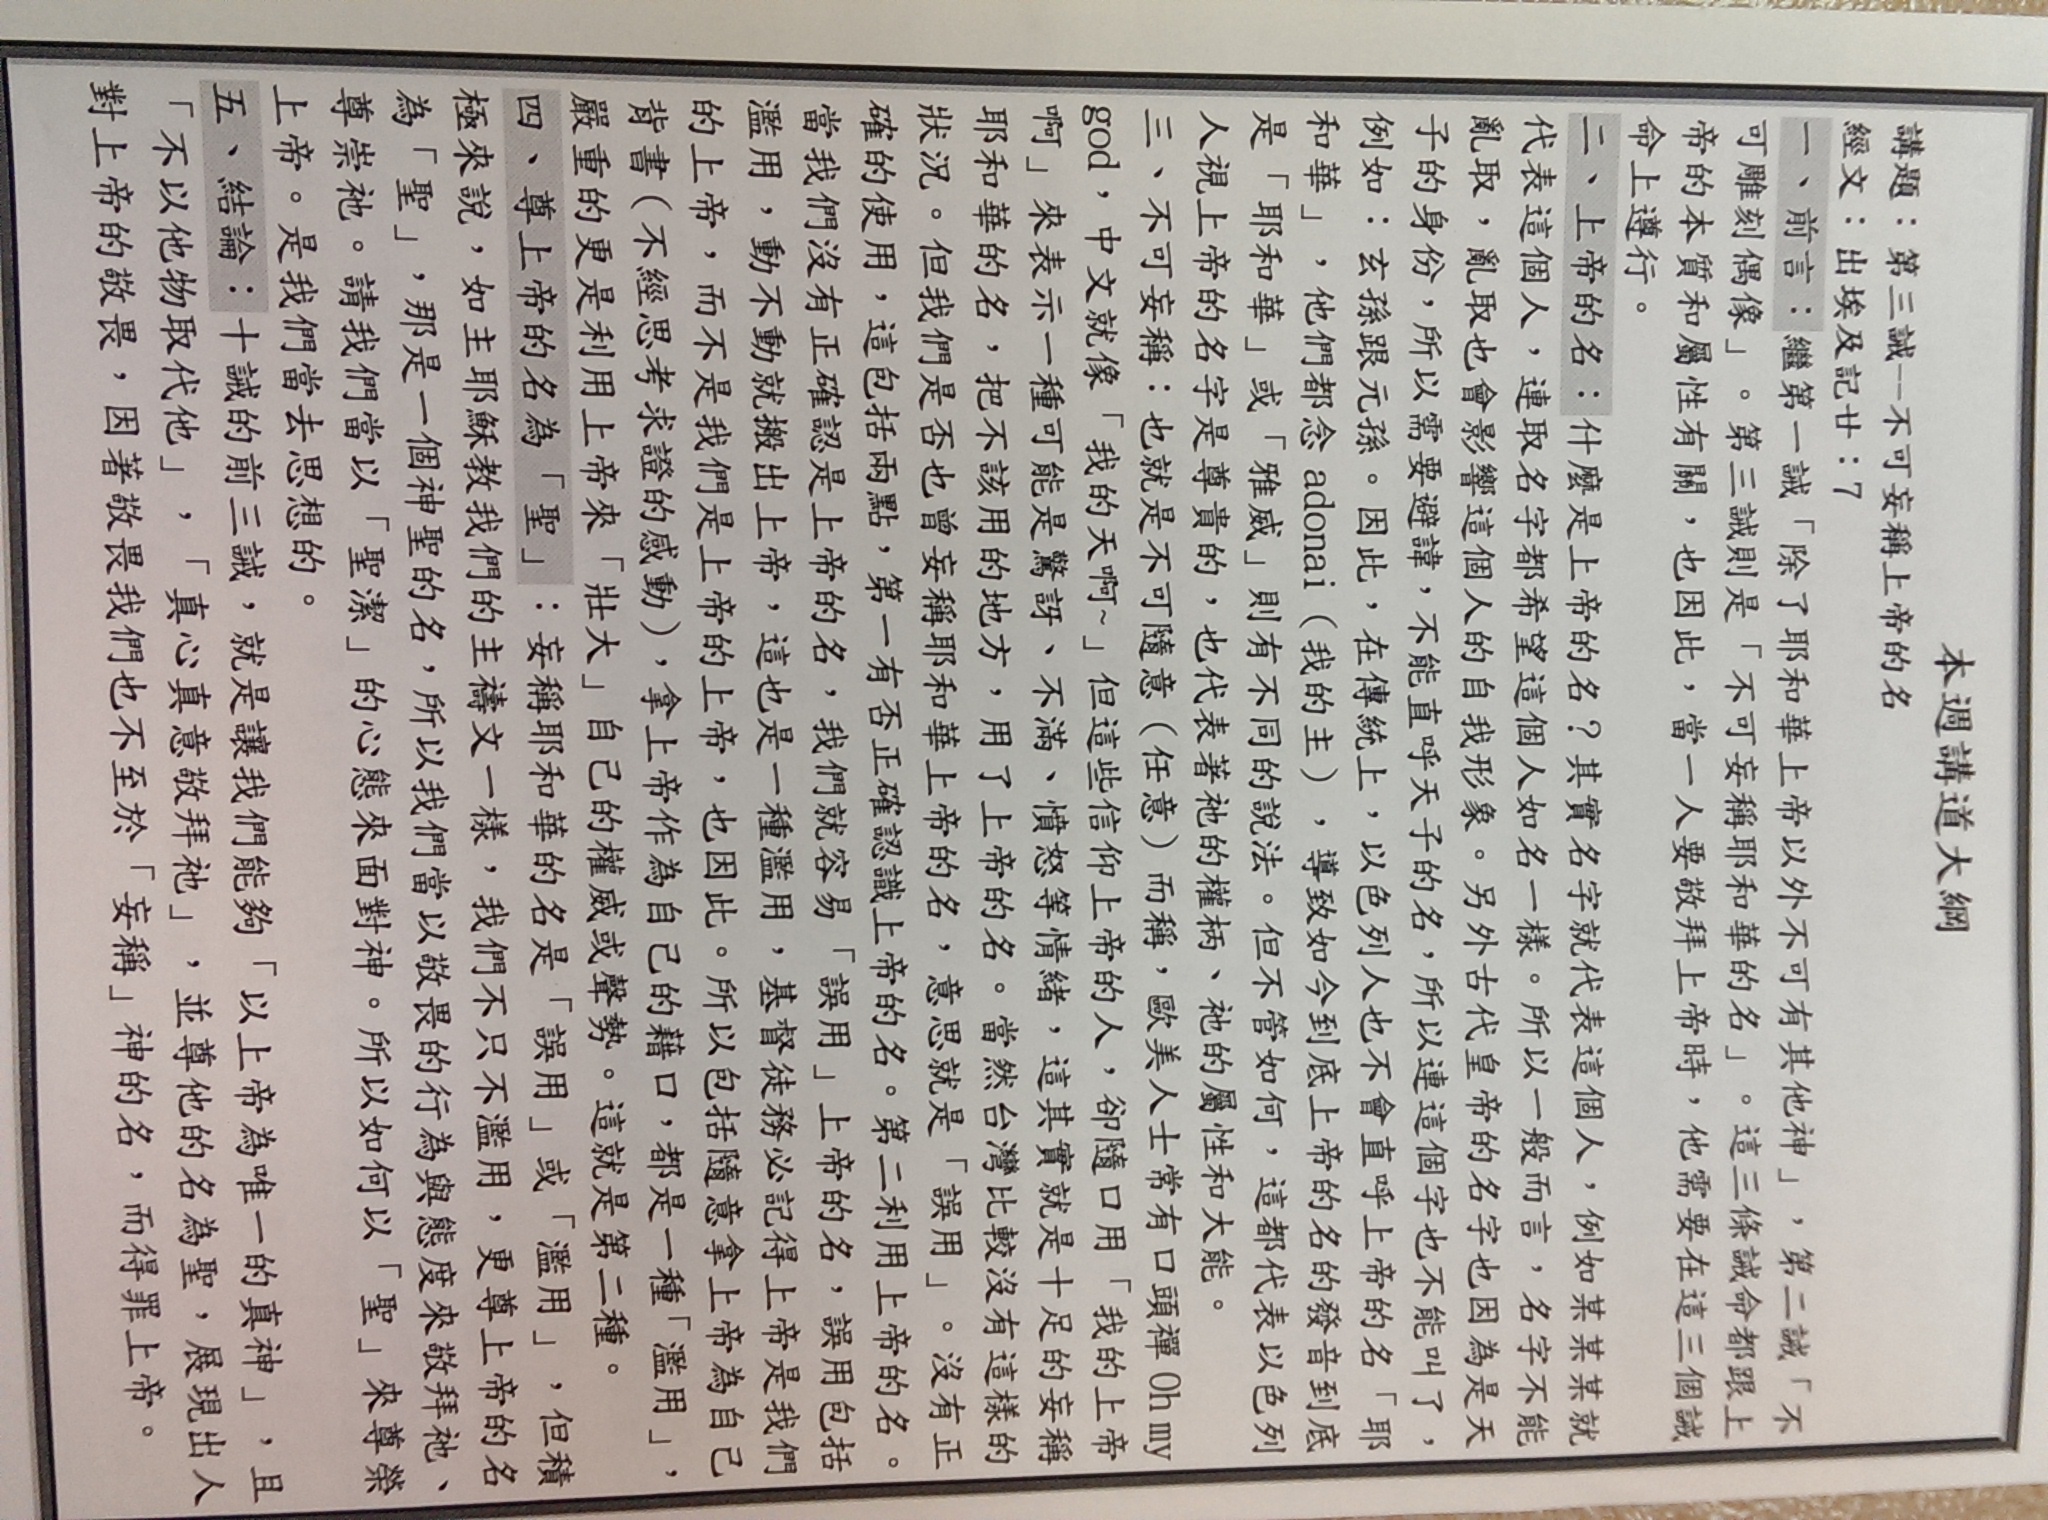 本週講道大綱
講題：第三誡--不可妄稱上帝的名
經文：出埃及記廿：7
一、前言：繼第一誡「除了耶和華上帝以外不可有其他神」，第二誡「不
可雕刻偶像」。第三誡則是「不可妄稱耶和華的名」。這三條誡命都跟上
帝的本質和屬性有關，也因此，當一人要敬拜上帝時，他需要在這三個誡
命上遵行。
二、上帝的名：什麼是上帝的名？其實名字就代表這個人，例如某某某就
代表這個人，連取名字都希望這個人如名一樣。所以一般而言，名字不能
亂取，亂取也會影響這個人的自我形象。另外古代皇帝的名字也因為是天
子的身份，所以需要避諱，不能直呼天子的名，所以連這個字也不能叫了，
例如：玄孫跟元孫。因此，在傳統上，以色列人也不會直呼上帝的名「耶
和華」，他們都念 adonai（我的主），導致如今到底上帝的名的發音到底
是「耶和華」或「雅威」則有不同的說法。但不管如何，這都代表以色列
人視上帝的名字是尊貴的，也代表著祂的權柄、祂的屬性和大能。
三、不可妄稱：也就是不可隨意（任意）而稱，歐美人士常有口頭禪 Oh my
god，中文就像「我的天啊~」但這些信仰上帝的人，卻隨口用「我的上帝
啊」來表示一種可能是驚訝、不滿、憤怒等情緒，這其實就是十足的妄稱
耶和華的名，把不該用的地方，用了上帝的名。當然台灣比較沒有這樣的
狀況。但我們是否也曾妄稱耶和華上帝的名，意思就是「誤用」。沒有正
確的使用，這包括兩點，第一有否正確認識上帝的名。第二利用上帝的名。
當我們沒有正確認是上帝的名，我們就容易「誤用」上帝的名，誤用包括
濫用，動不動就搬出上帝，這也是一種濫用，基督徒務必記得上帝是我們
的上帝，而不是我們是上帝的上帝，也因此。所以包括隨意拿上帝為自己
背書（不經思考求證的感動），拿上帝作為自己的藉口，都是一種「濫用」，
嚴重的更是利用上帝來「壯大」自己的權威或聲勢。這就是第二種。
四、尊上帝的名為「聖」：妄稱耶和華的名是「誤用」或「濫用」，但積
極來說，如主耶穌教我們的主禱文一樣，我們不只不濫用，更尊上帝的名
為「聖」，那是一個神聖的名，所以我們當以敬畏的行為與態度來敬拜祂、
尊崇祂。請我們當以「聖潔」的心態來面對神。所以如何以「聖」來尊榮
上帝。是我們當去思想的。
五、結論：十誡的前三誡，就是讓我們能夠「以上帝為唯一的真神」，且
「不以他物取代他」，「真心真意敬拜祂」，並尊他的名為聖，展現出人
對上帝的敬畏，因著敬畏我們也不至於「妄稱」神的名，而得罪上帝。